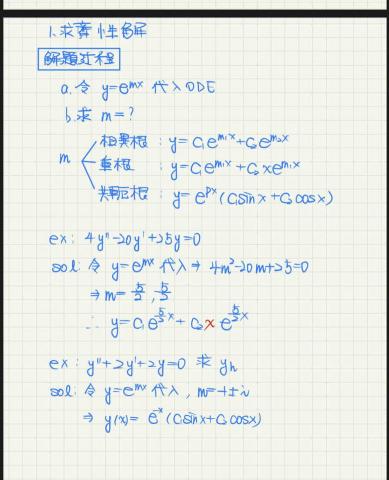 1.求齊性解
解題过程
a.令 y=e^{mx} 代入ODE
b.求 m=?
相異根 : y=C₁e^{m₁x}+C₂e^{m₂x}
m 重根 : y=C₁e^{m₁x}+C₂xe^{m₁x}
共軛根 : y=e^{px}(C₁sinx+C₂cosx)
ex: 4y''-20y'+25y=0
sol: 令 y=e^{mx} 代入⇒ 4m²-20m+25=0
⇒ m= 5/2 , 5/2
∴ y=C₁e^{5/2 x}+C₂xe^{5/2 x}
ex: y''+2y'+2y=0 求 yₕ
sol: 令 y=e^{mx} 代入, m=-1±i
⇒ y(x)= e^{-x}(C₁sinx+C₂cosx)